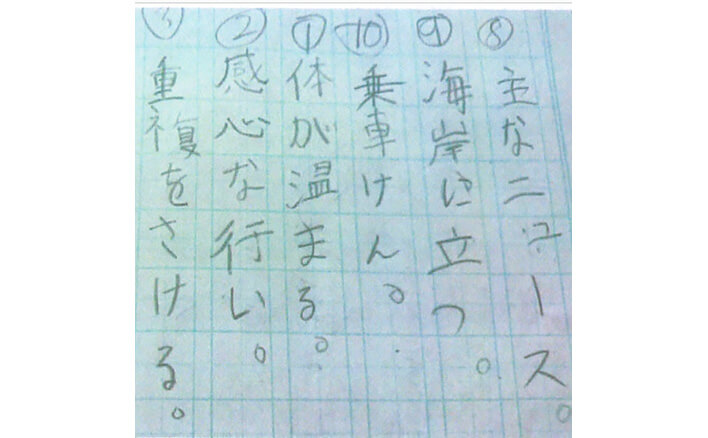 ⑧主なニュース。
⑨海岸に立つ。
⑩乗車けん。
①体が温まる。
②感心な行い。
③重複をさける。